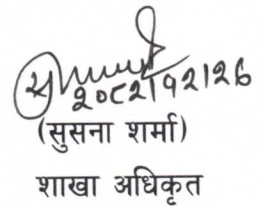 २०८२।१२।२६
(सुसना शर्मा)
शाखा अधिकृत